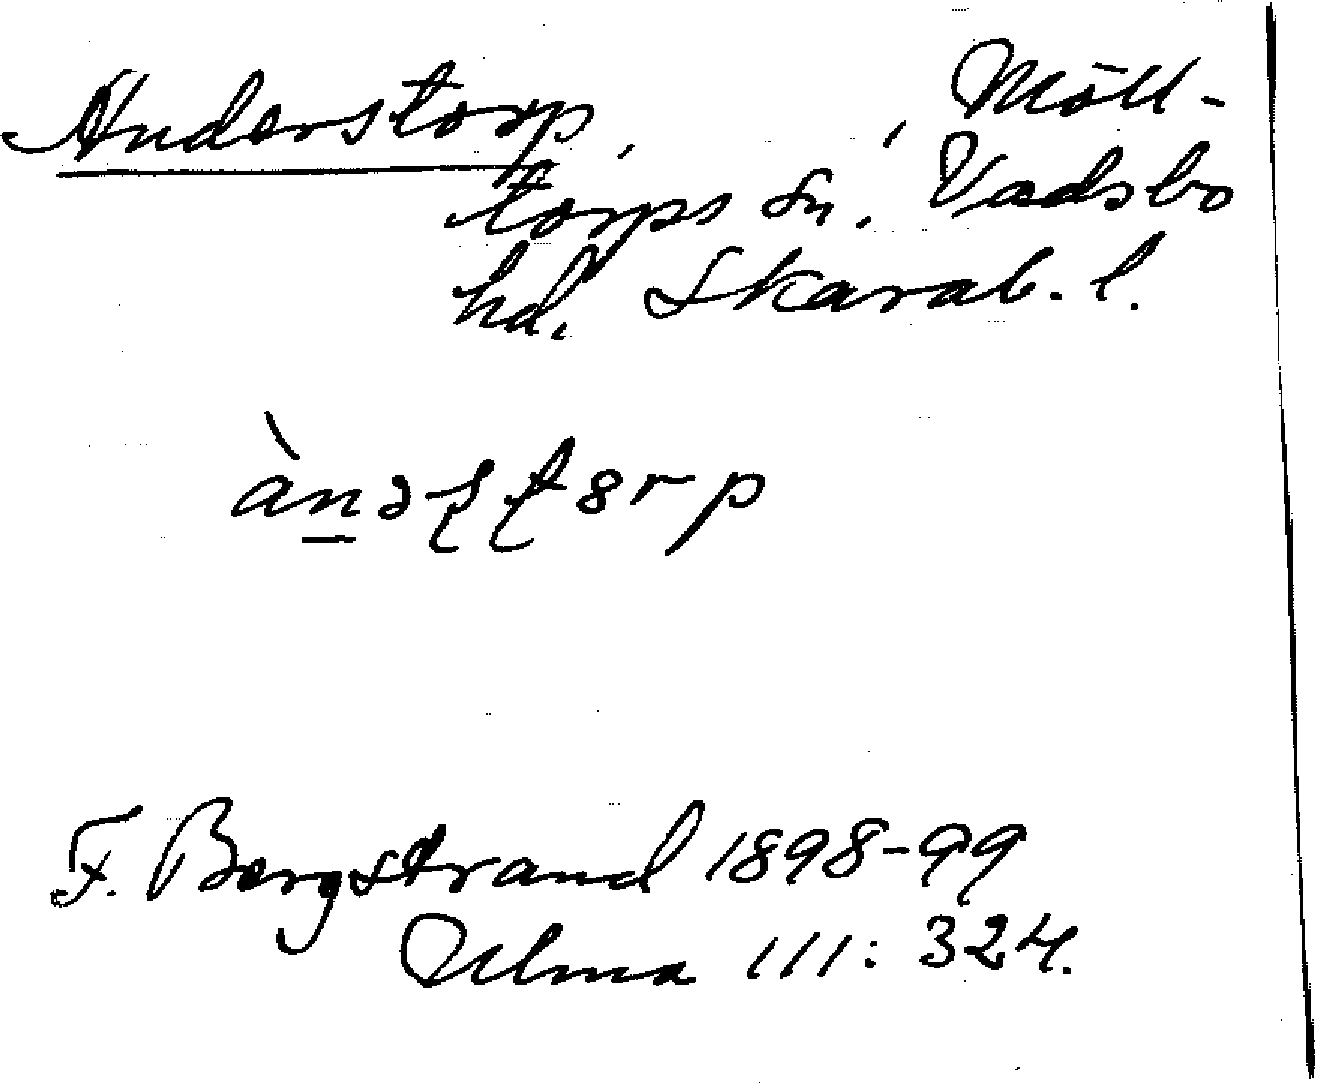 Anderstorp, , Möll-
torps sn, Vadsbo
hd. Skarab. l.
F. Bergstrand 1898-99
Ulma 111: 324.